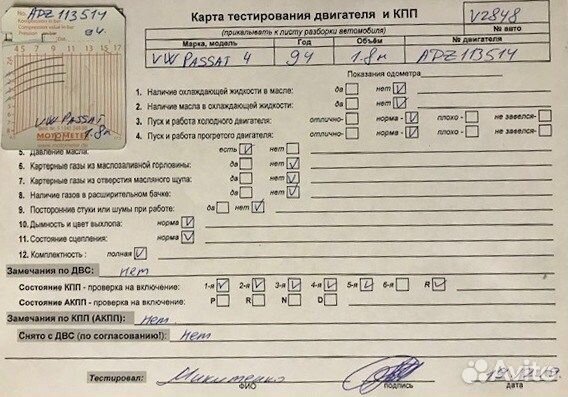 No. ADZ 113514
94
4 5 7 9 11 13 15 17
VW PASSAT
1.8м
MOTOMETER
Карта тестирования двигателя и КПП
(прикалывать к листу разборки автомобиля)
V2848
№ авто
Марка, модель Год Объём № двигателя
VW PASSAT 4 94 1.8м ADZ 113514
Показания одометра
1. Наличие охлаждающей жидкости в масле: да нет
2. Наличие масла в охлаждающей жидкости: да нет
3. Пуск и работа холодного двигателя: отлично- норма - плохо - не завелся-
4. Пуск и работа прогретого двигателя: отлично- норма - плохо - не завелся-
5. Давление масла: есть нет
6. Картерные газы из маслозаливной горловины: да нет
7. Картерные газы из отверстия масляного щупа: да нет
8. Наличие газов в расширительном бачке: да нет
9. Посторонние стуки или шумы при работе: да нет
10. Дымность и цвет выхлопа: норма
11. Состояние сцепления: норма
12. Комплектность: полная
Замечания по ДВС: нет
Состояние КПП - проверка на включение: 1-я 2-я 3-я 4-я 5-я 6-я R
Состояние АКПП - проверка на включение: P R N D
Замечания по КПП (АКПП): нет
Снято с ДВС (по согласованию!): нет
Тестировал: Микитенко
ФИО подпись дата
Avito